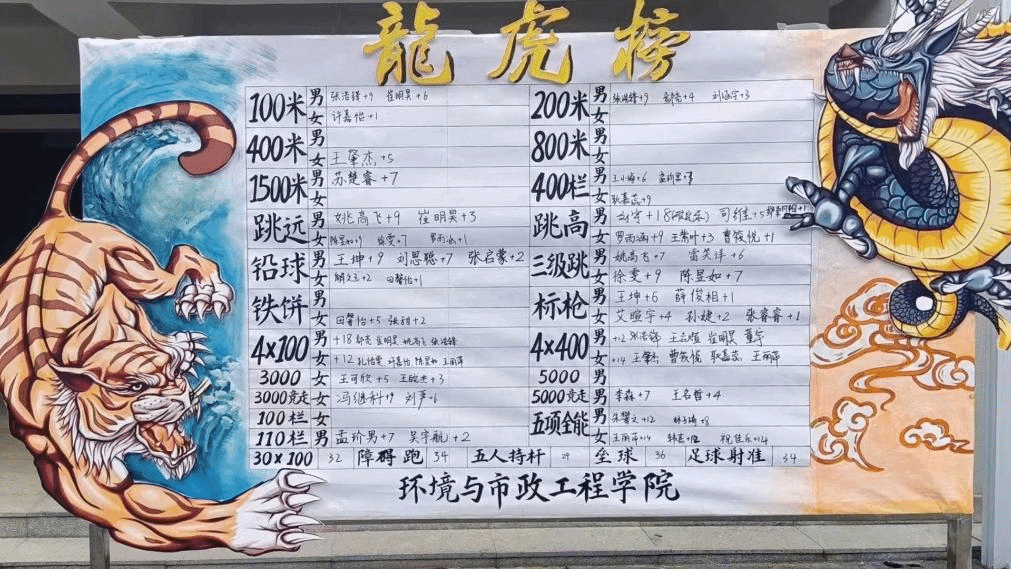 龍虎榜
100米 男 张浩锋+9 崔明昊+6 200米 男 张浩锋+9 +4 刘涵宇+3
女 许嘉怡+1 女
400米 男 800米 男
女 王肇杰+5 女
1500米 男 苏楚睿+7 400栏 男 王小海+6
女 女 耿嘉蕊+9
跳远 男 姚高飞+9 崔明昊+3 跳高 男 刘宇+18 司维+5 +1
女 陈昱如+9 徐雯+7 罗雨涵+1 女 罗雨涵+9 王紫叶+3 曹筱悦+1
铅球 男 王坤+9 刘思聪+7 张启蒙+2 三级跳 男 姚高飞+7 雷笑洋+6
女 +2 田馨怡+1 女 徐雯+9 陈昱如+7
铁饼 男 标枪 男 王坤+6 薛俊相+1
女 田馨怡+5 张甜+2 女 艾暄宇+4 孙婕+2 张睿睿+1
4×100 男 +18 崔明昊 姚高飞 张浩锋 4×400 男 +12 张浩锋 崔明昊
女 +12 孔怡雯 许嘉怡 陈昱如 王丽萍 女 +14 王肇杰 曹筱悦 耿嘉蕊 王丽萍
3000 女 王可欣+5 王皖杰+3 5000 男
3000竞走 女 冯继科+9 刘芦+6 5000竞走 男 李森+7 王名哲+4
100栏 女 五项全能 男 朱馨文+12 +8
110栏 男 孟玠男+7 吴宇航+2 女 王丽萍+14 韩嘉+12 祝佳乐+124
30×100 32 障碍跑 34 五人持杆 29 垒球 36 足球射准 34
环境与市政工程学院